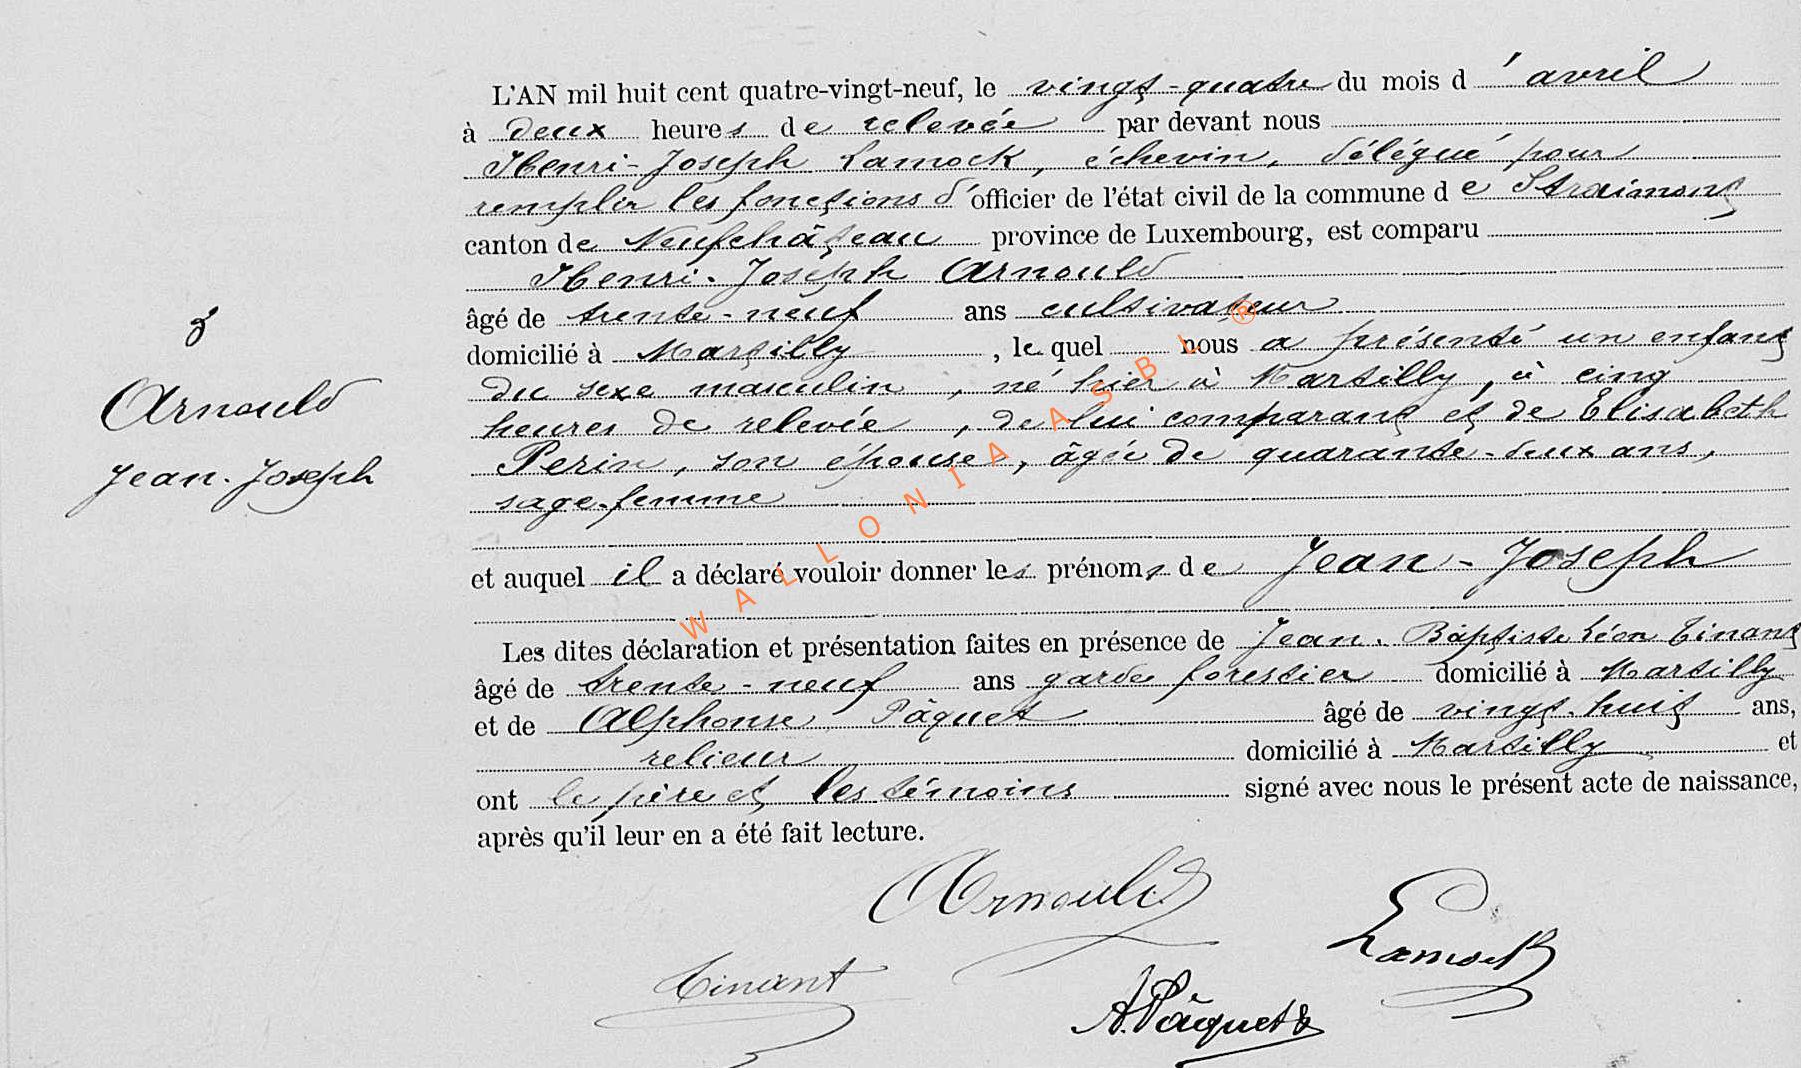 L'AN mil huit cent quatre-vingt-neuf, le vingt-quatre du mois d'avril
à deux heures de relevée par devant nous
Henri-Joseph Lamock, échevin, délégué pour
remplir les fonctions d'officier de l'état civil de la commune de Straimont
canton de Neufchâteau province de Luxembourg, est comparu
Henri-Joseph Arnould
âgé de trente-neuf ans cultivateur
domicilié à Martilly, le quel nous a présenté un enfant
du sexe masculin, né hier à Martilly, à cinq
heures de relevée, de lui comparant et de Elisabeth
Perin, son épouse, âgée de quarante-deux ans,
sage-femme
et auquel il a déclaré vouloir donner les prénoms de Jean-Joseph
Les dites déclaration et présentation faites en présence de Jean-Baptiste Léon Tinant
âgé de trente-neuf ans garde forestier domicilié à Martilly
et de Alphonse Pâquet âgé de vingt-huit ans,
relieur domicilié à Martilly et
ont le père et les témoins signé avec nous le présent acte de naissance,
après qu'il leur en a été fait lecture.
8
Arnould
Jean-Joseph
Arnould
Lamock
Tinant
A. Pâquet
WALLONIA ASBL ®